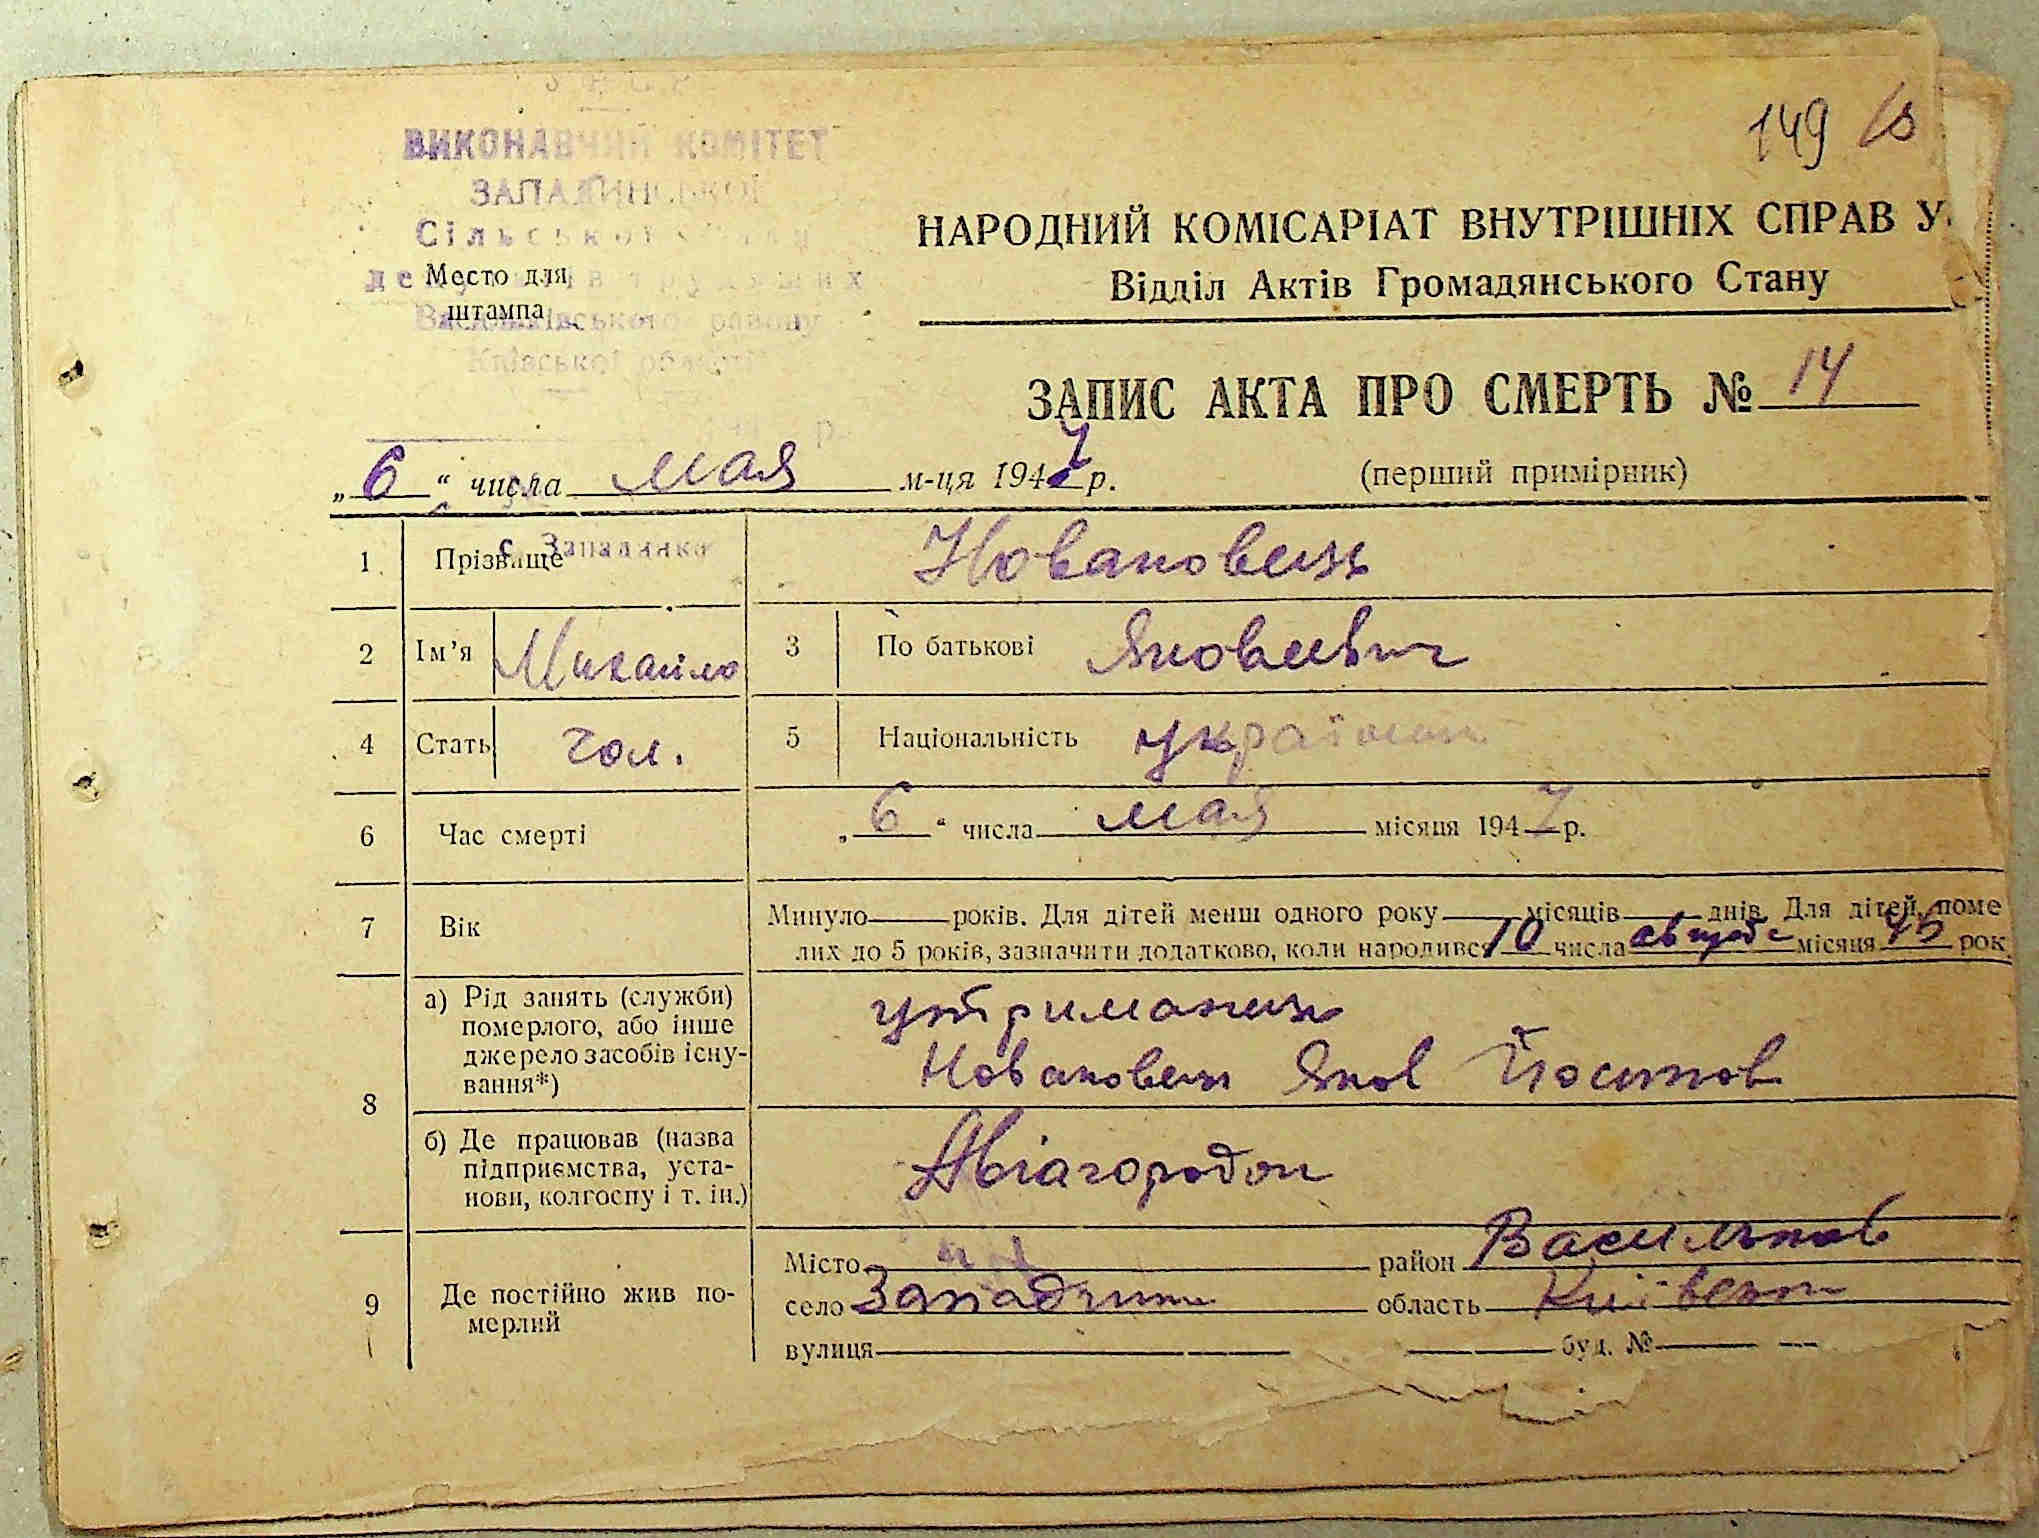 149
ВИКОНАВЧИЙ КОМІТЕТ
ЗАПАДИНСЬКОЇ
Сільської Ради
депутатів трудящих
Васильківського району
Київської області
Место для
штампа
НАРОДНИЙ КОМІСАРІАТ ВНУТРІШНІХ СПРАВ У
Відділ Актів Громадянського Стану
ЗАПИС АКТА ПРО СМЕРТЬ № 14
„6“ числа мая м-ця 1947 р.
(перший примірник)
с. Западинка
1 Прізвище Новаковець
2 Ім’я Михайло 3 По батькові Яковлевич
4 Стать чол. 5 Національність українець
6 Час смерті „6“ числа мая місяця 1947 р.
7 Вік Минуло років. Для дітей менш одного року місяців днів. Для дітей, поме
лих до 5 років, зазначити додатково, коли народився 10 числа августа місяця 45 рок
8 а) Рід занять (служби)
померлого, або інше
джерело засобів існу-
вання*)
утриманець
Новаковець Яков Йосипов
б) Де працював (назва
підприємства, уста-
нови, колгоспу і т. ін.)
Авіагородок
9 Де постійно жив по-
мерлий
Місто район Васильков
село Западинка область Київська
вулиця буд. №